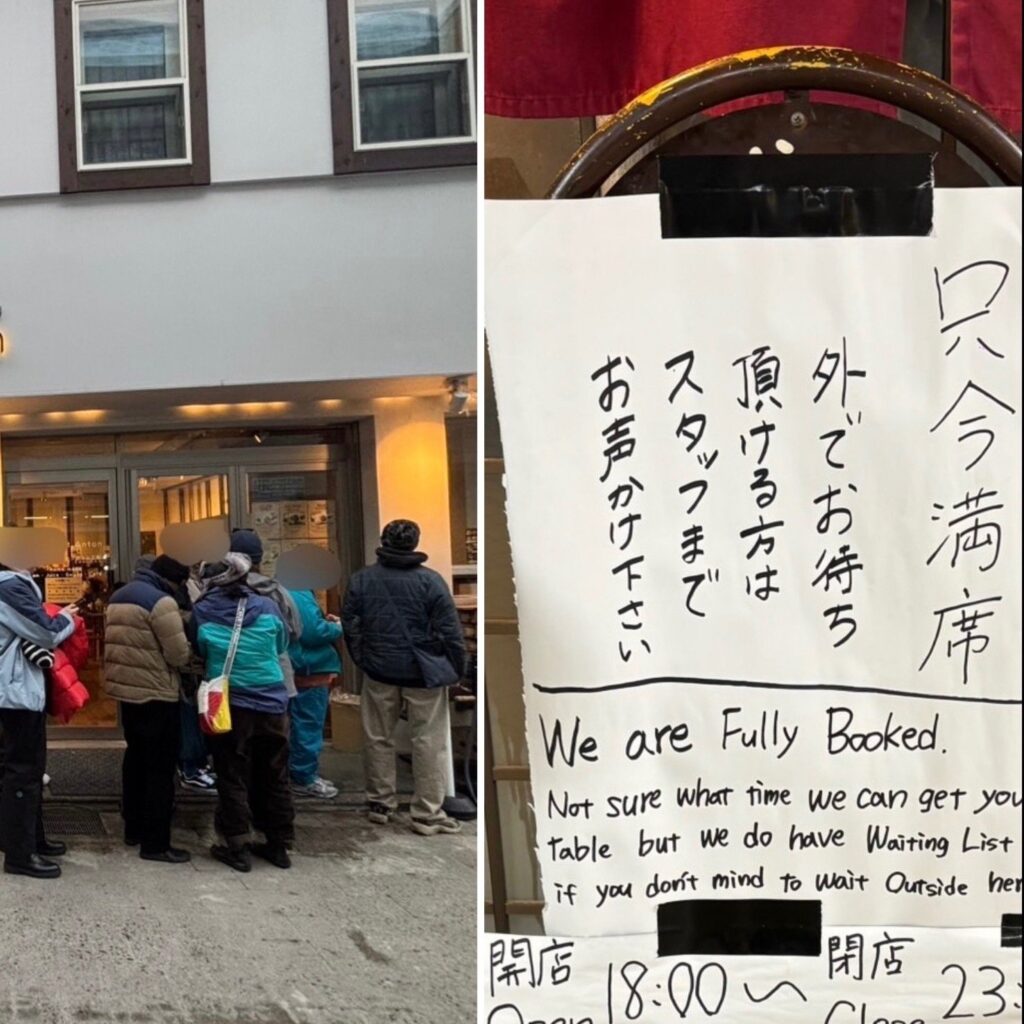 只今満席
外でお待ち
頂ける方は
スタッフまで
お声かけ下さい
We are Fully Booked.
Not sure what time we can get you
table but we do have Waiting List
if you don't mind to wait Outside
開店 18:00〜 閉店 23:
Open Close